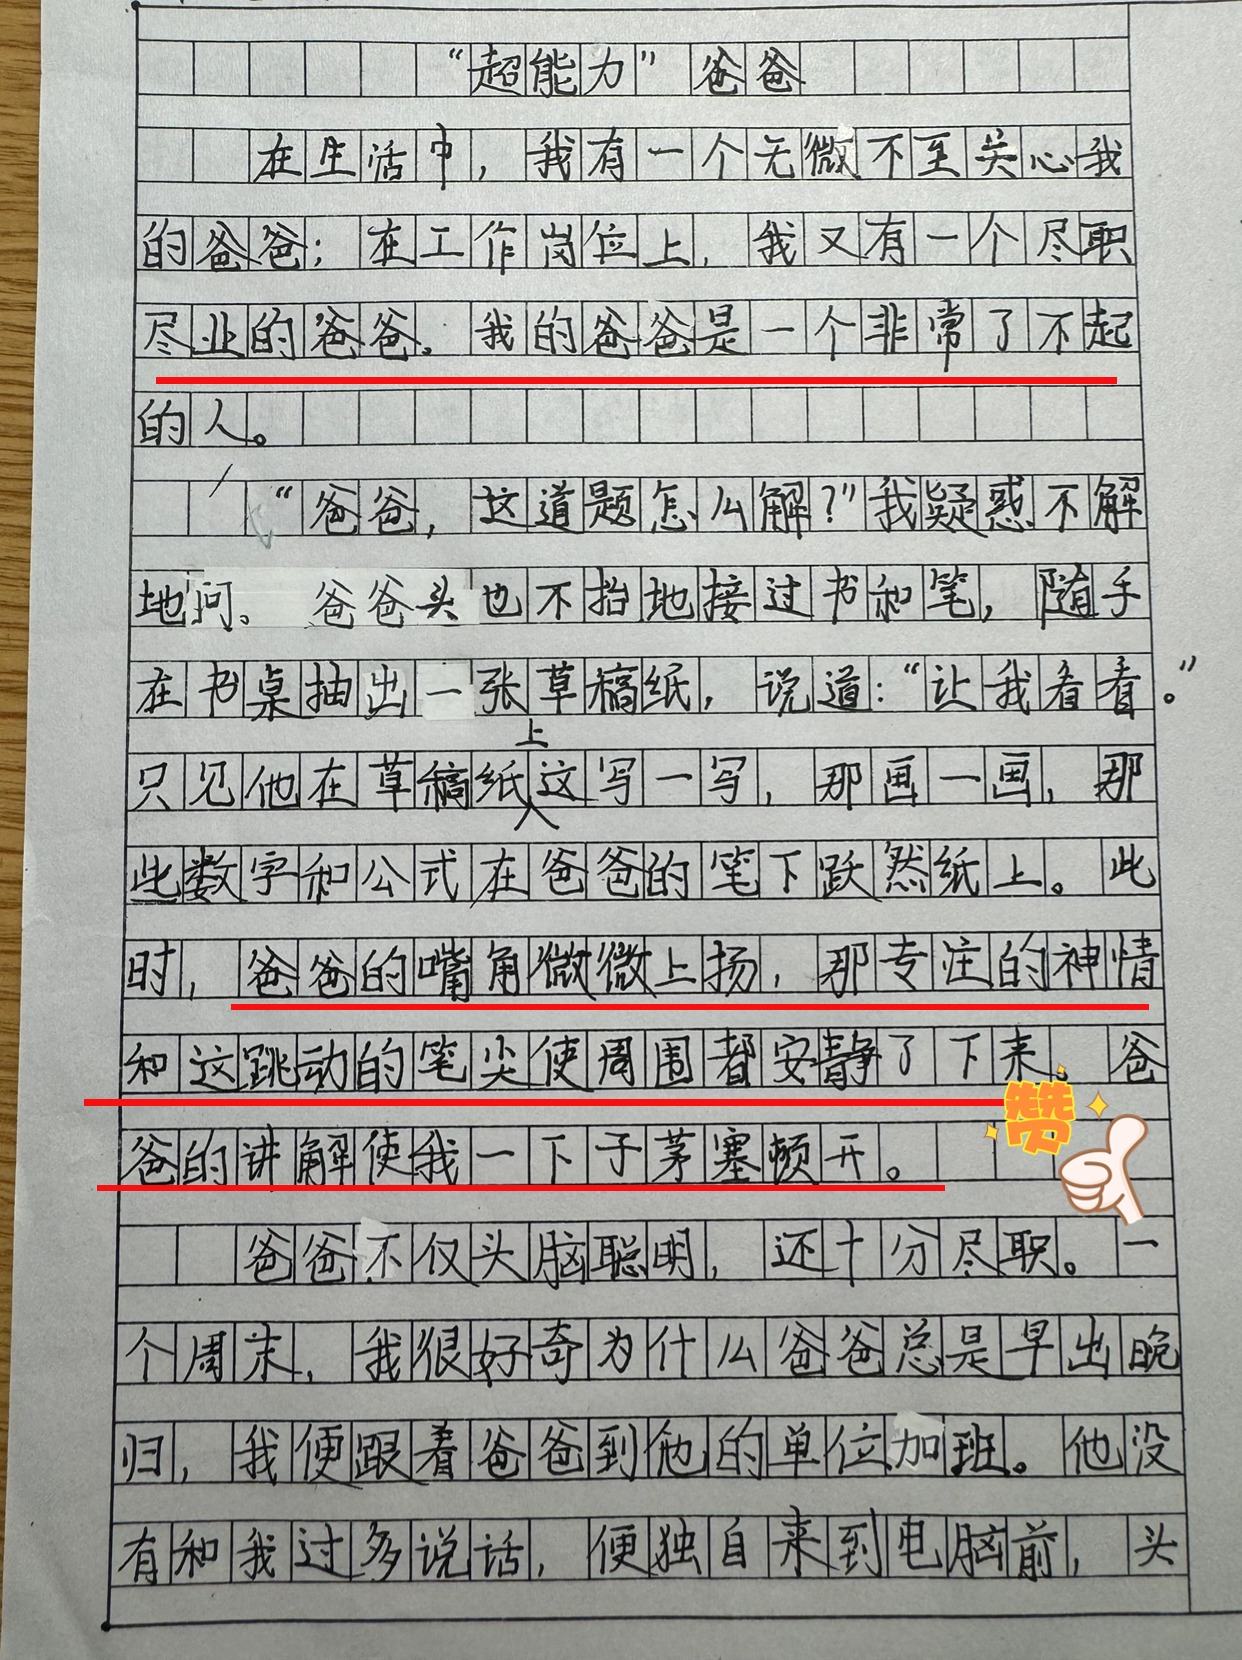 “超能力”爸爸
在生活中，我有一个无微不至关心我
的爸爸；在工作岗位上，我又有一个尽职
尽业的爸爸。我的爸爸是一个非常了不起
的人。
“爸爸，这道题怎么解？”我疑惑不解
地问。爸爸头也不抬地接过书和笔，随手
在书桌抽出一张草稿纸，说道：“让我看看。”
只见他在草稿纸上这写一写，那画一画，那
些数字和公式在爸爸的笔下跃然纸上。此
时，爸爸的嘴角微微上扬，那专注的神情
和这跳动的笔尖使周围都安静了下来。爸
赞
爸的讲解使我一下子茅塞顿开。
爸爸不仅头脑聪明，还十分尽职。一
个周末，我很好奇为什么爸爸总是早出晚
归，我便跟着爸爸到他的单位加班。他没
有和我过多说话，便独自来到电脑前，头